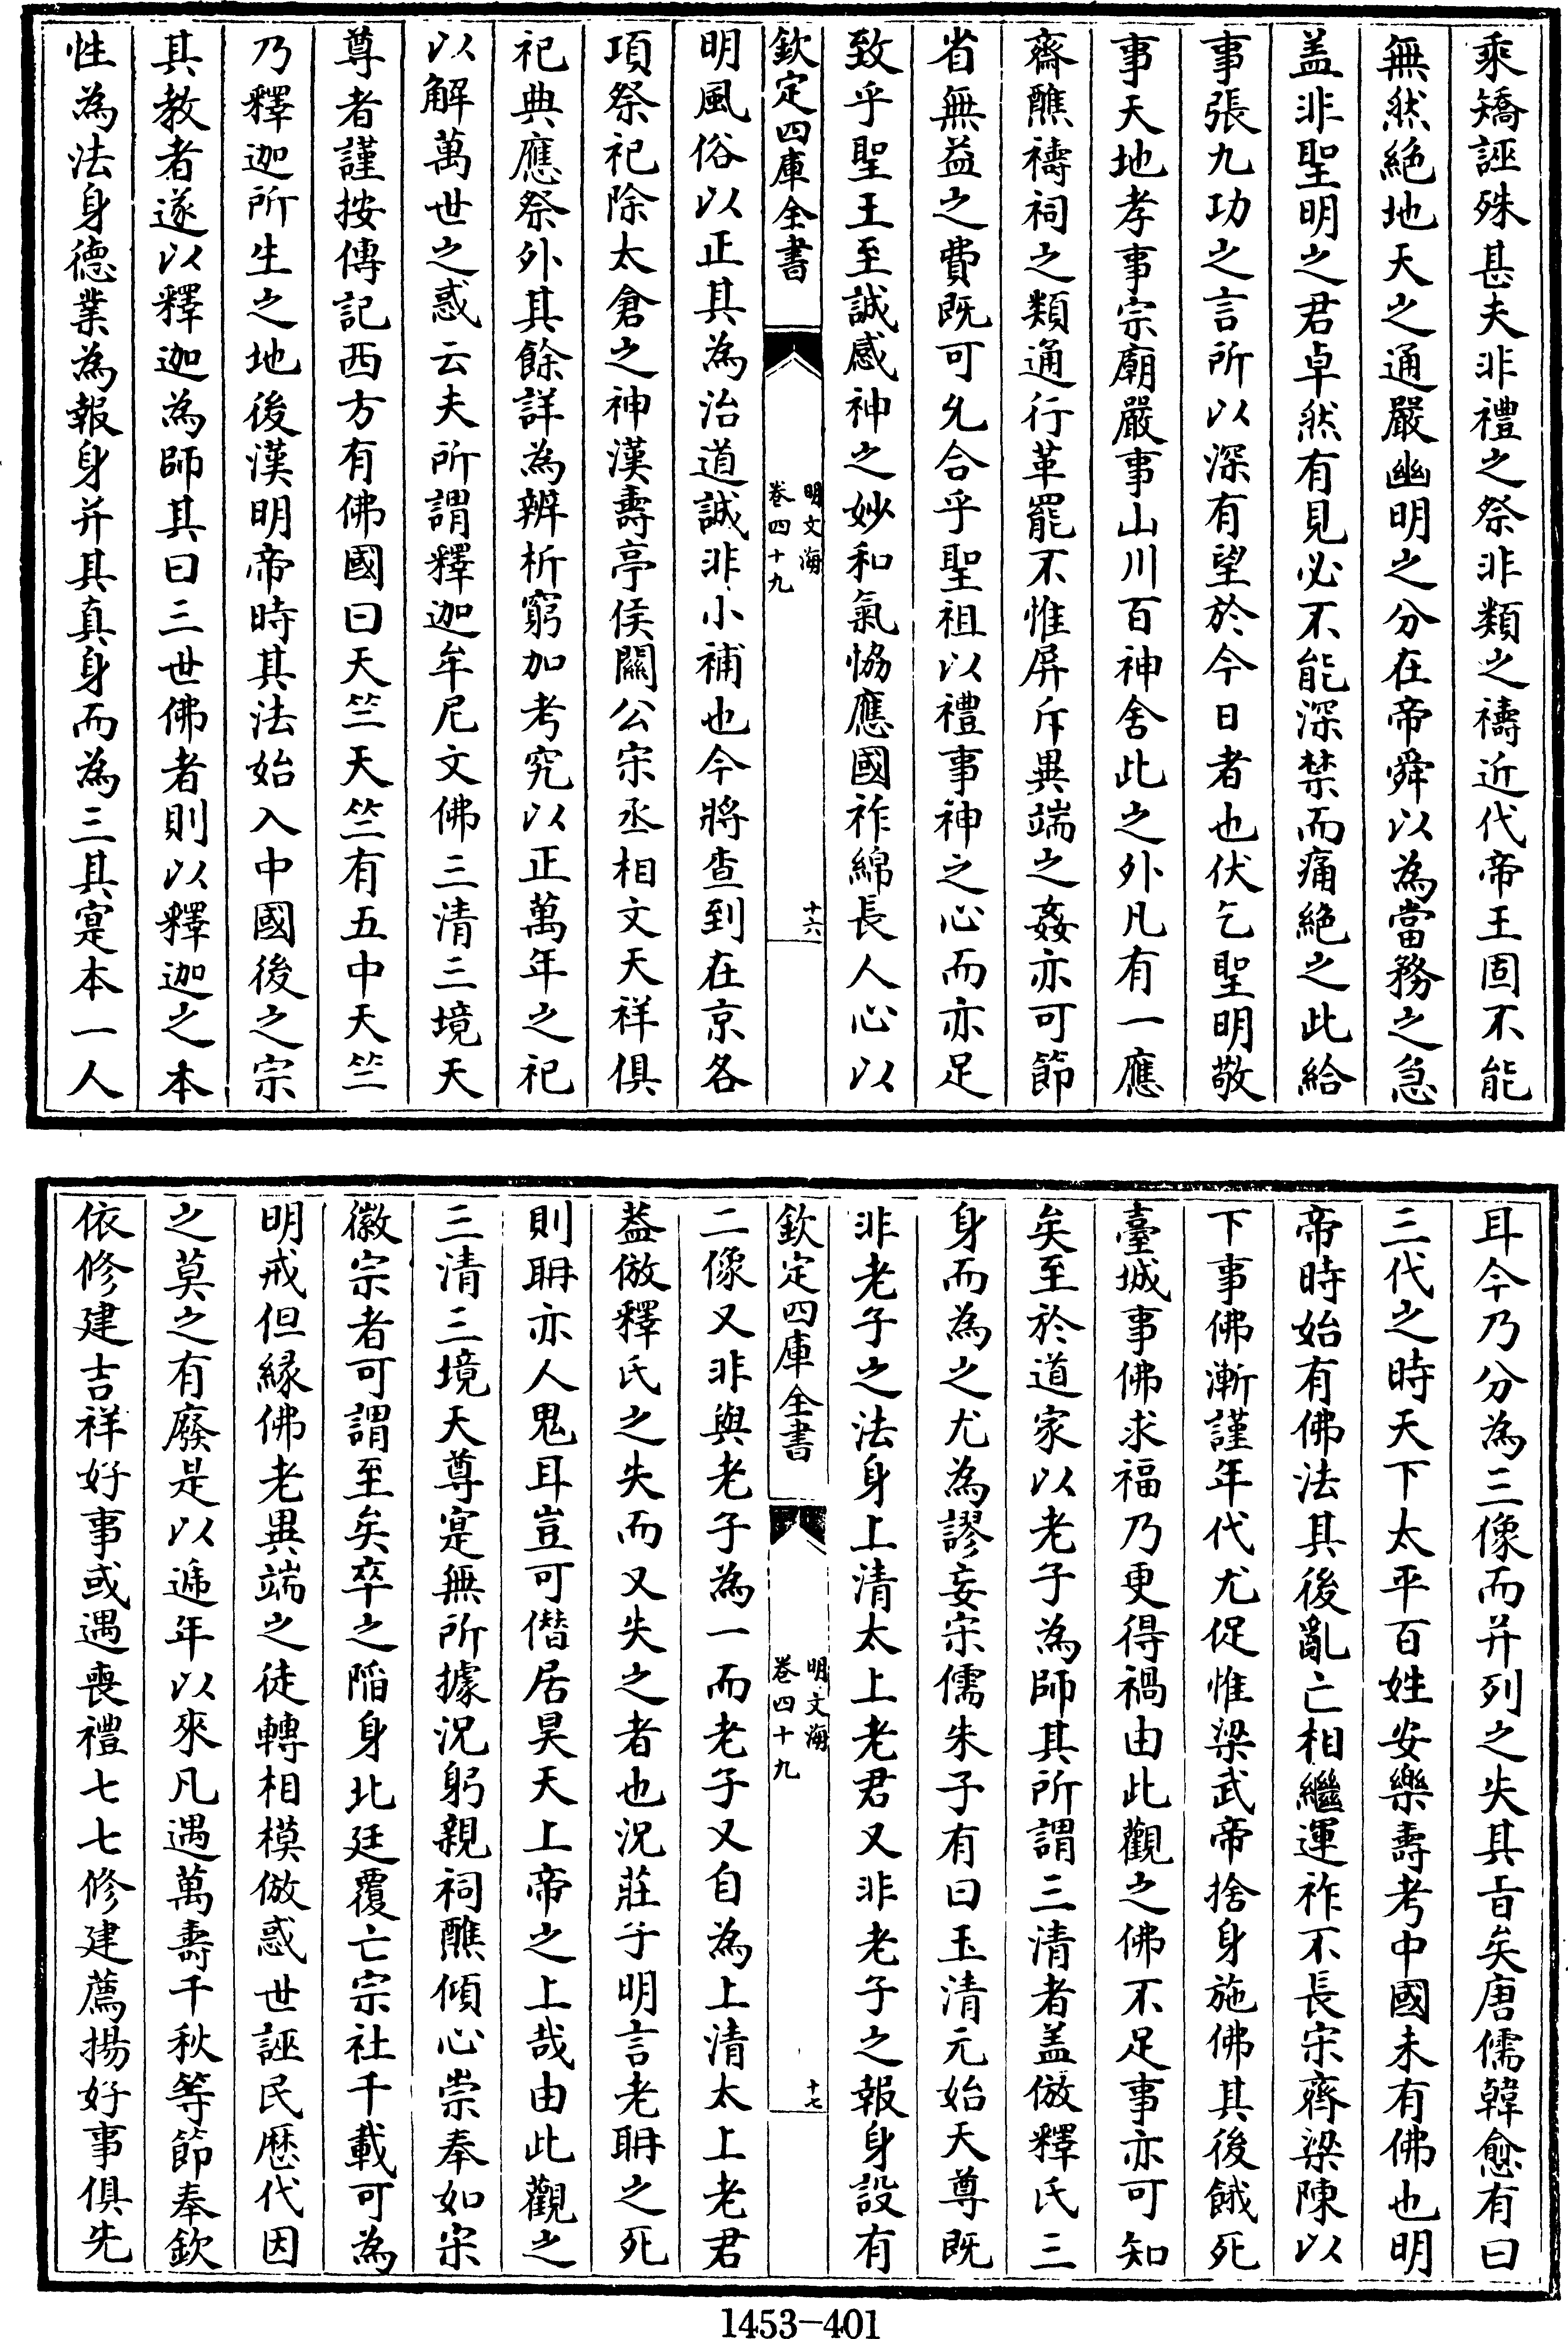 乘矯誣殊甚夫非禮之祭非類之禱近代帝王固不能
無然絶地天之通嚴幽明之分在帝舜以為當務之急
盖非聖明之君卓然有見必不能深禁而痛絶之此給
事張九功之言所以深有望於今日者也伏乞聖明敬
事天地孝事宗廟嚴事山川百神舍此之外凡有一應
齋醮禱祠之類通行革罷不惟屏斥異端之姦亦可節
省無益之費既可允合乎聖祖以禮事神之心而亦足
致乎聖王至誠感神之妙和氣恊應國祚綿長人心以
欽定四庫全書
明文海
卷四十九
十六
明風俗以正其為治道誠非小補也今將查到在京各
項祭祀除太倉之神漢壽亭侯關公宋丞相文天祥俱
祀典應祭外其餘詳為辨析窮加考究以正萬年之祀
以解萬世之惑云夫所謂釋迦牟尼文佛三清三境天
尊者謹按傳記西方有佛國曰天竺天竺有五中天竺
乃釋迦所生之地後漢明帝時其法始入中國後之宗
其教者遂以釋迦為師其曰三世佛者則以釋迦之本
性為法身德業為報身并其真身而為三其寔本一人
耳今乃分為三像而并列之失其旨矣唐儒韓愈有曰
三代之時天下太平百姓安樂壽考中國未有佛也明
帝時始有佛法其後亂亡相繼運祚不長宋齊梁陳以
下事佛漸謹年代尤促惟梁武帝捨身施佛其後餓死
臺城事佛求福乃更得禍由此觀之佛不足事亦可知
矣至於道家以老子為師其所謂三清者盖倣釋氏三
身而為之尤為謬妄宋儒朱子有曰玉清元始天尊既
非老子之法身上清太上老君又非老子之報身設有
欽定四庫全書
明文海
卷四十九
十七
二像又非與老子為一而老子又自為上清太上老君
蓋倣釋氏之失而又失之者也況莊子明言老聃之死
則聃亦人鬼耳豈可僭居昊天上帝之上哉由此觀之
三清三境天尊寔無所據況躬親祠醮傾心崇奉如宋
徽宗者可謂至矣卒之陷身北廷覆亡宗社千載可為
明戒但緣佛老異端之徒轉相模倣惑世誣民歷代因
之莫之有廢是以逓年以來凡遇萬壽千秋等節奉欽
依修建吉祥好事或遇喪禮七七修建薦揚好事俱先
1453-401